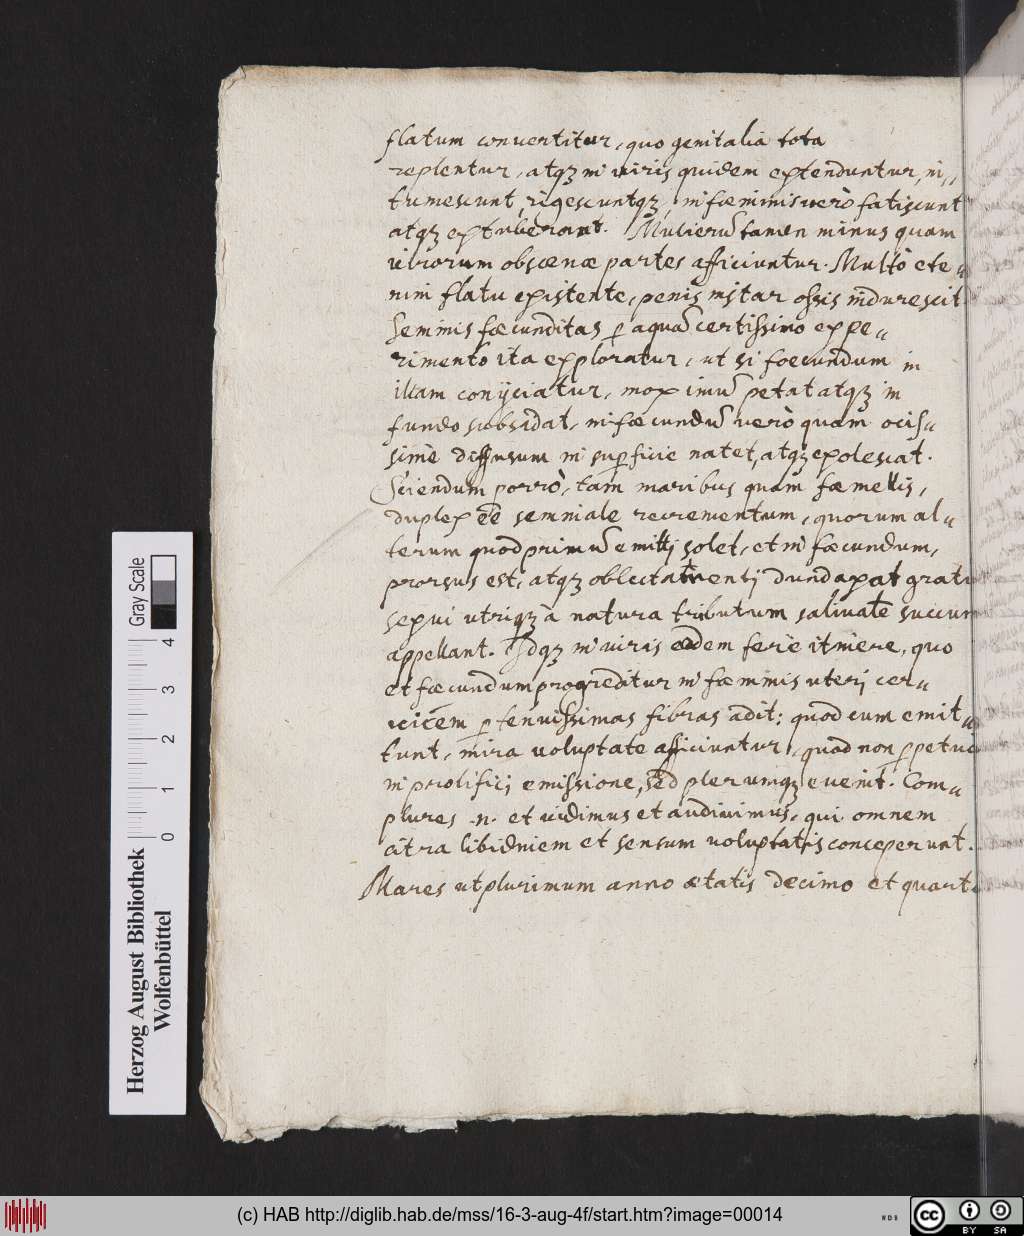 flatum conuertitur, quo genitalia tota
replentur, atqꝫ in uiris quidem extenduntur, in„
tumescunt, rigescuntqꝫ, in fœminis uerò fatiscunt
atqꝫ extuberant. Mulierũ tamen minus quam
uirorum obscœnæ partes afficiuntur. Multò ete„
nim flatu existente, penis instar ossis indurescit
Seminis fœcunditas ꝑ aquã certissimo expe„
rimento ita exploratur, ut si foecundum in
illam conijciatur, mox imũ petat atqꝫ in
fundo subsidat, infœcundũ uerò quam ocis„
simè diffusum in suꝑficie natet, atqꝫ exolescat.
Sciendum porrò, tam maribus quam fœmellis,
duplex eẽ seminale recrementum, quorum al„
terum quod primũ emitti solet, et infœcundum,
prorsus est, atqꝫ oblectamenti dundaxat grati
sexui utriqꝫ à natura tributum saliuale succum
appellant. Idqꝫ in uiris eodem ferè itinere, quo
et fœcundum progreditur in fœminis uterj cer„
uicem ꝑ tenuissimas fibras adit: quod cum emit„
tunt, mira uoluptate afficiuntur, quod non ꝑpetuo
in prolifici emissione, sed plerumqꝫ euenit. Com„
plures .n. et uidimus et audiuimus, qui omnem
citra libidinem et sensum uoluptatis conceperunt.
Mares ut plurimum anno ætatis decimo et quarto
Herzog August Bibliothek
Wolfenbüttel
Gray Scale
0 1 2 3 4
(c) HAB http://diglib.hab.de/mss/16-3-aug-4f/start.htm?image=00014
WDB
cc BY SA